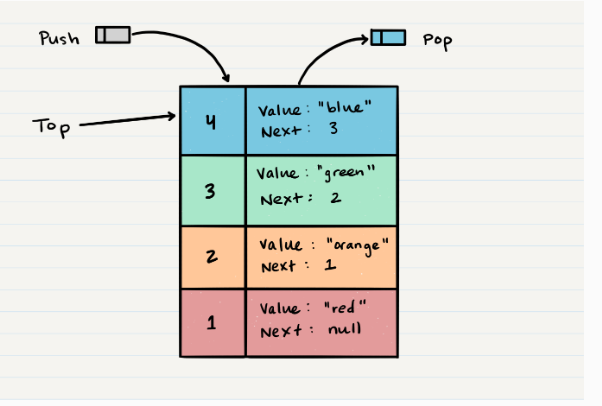 Push
Pop
Top
4
Value: "blue"
Next: 3
3
Value: "green"
Next: 2
2
Value: "orange"
Next: 1
1
Value: "red"
Next: null